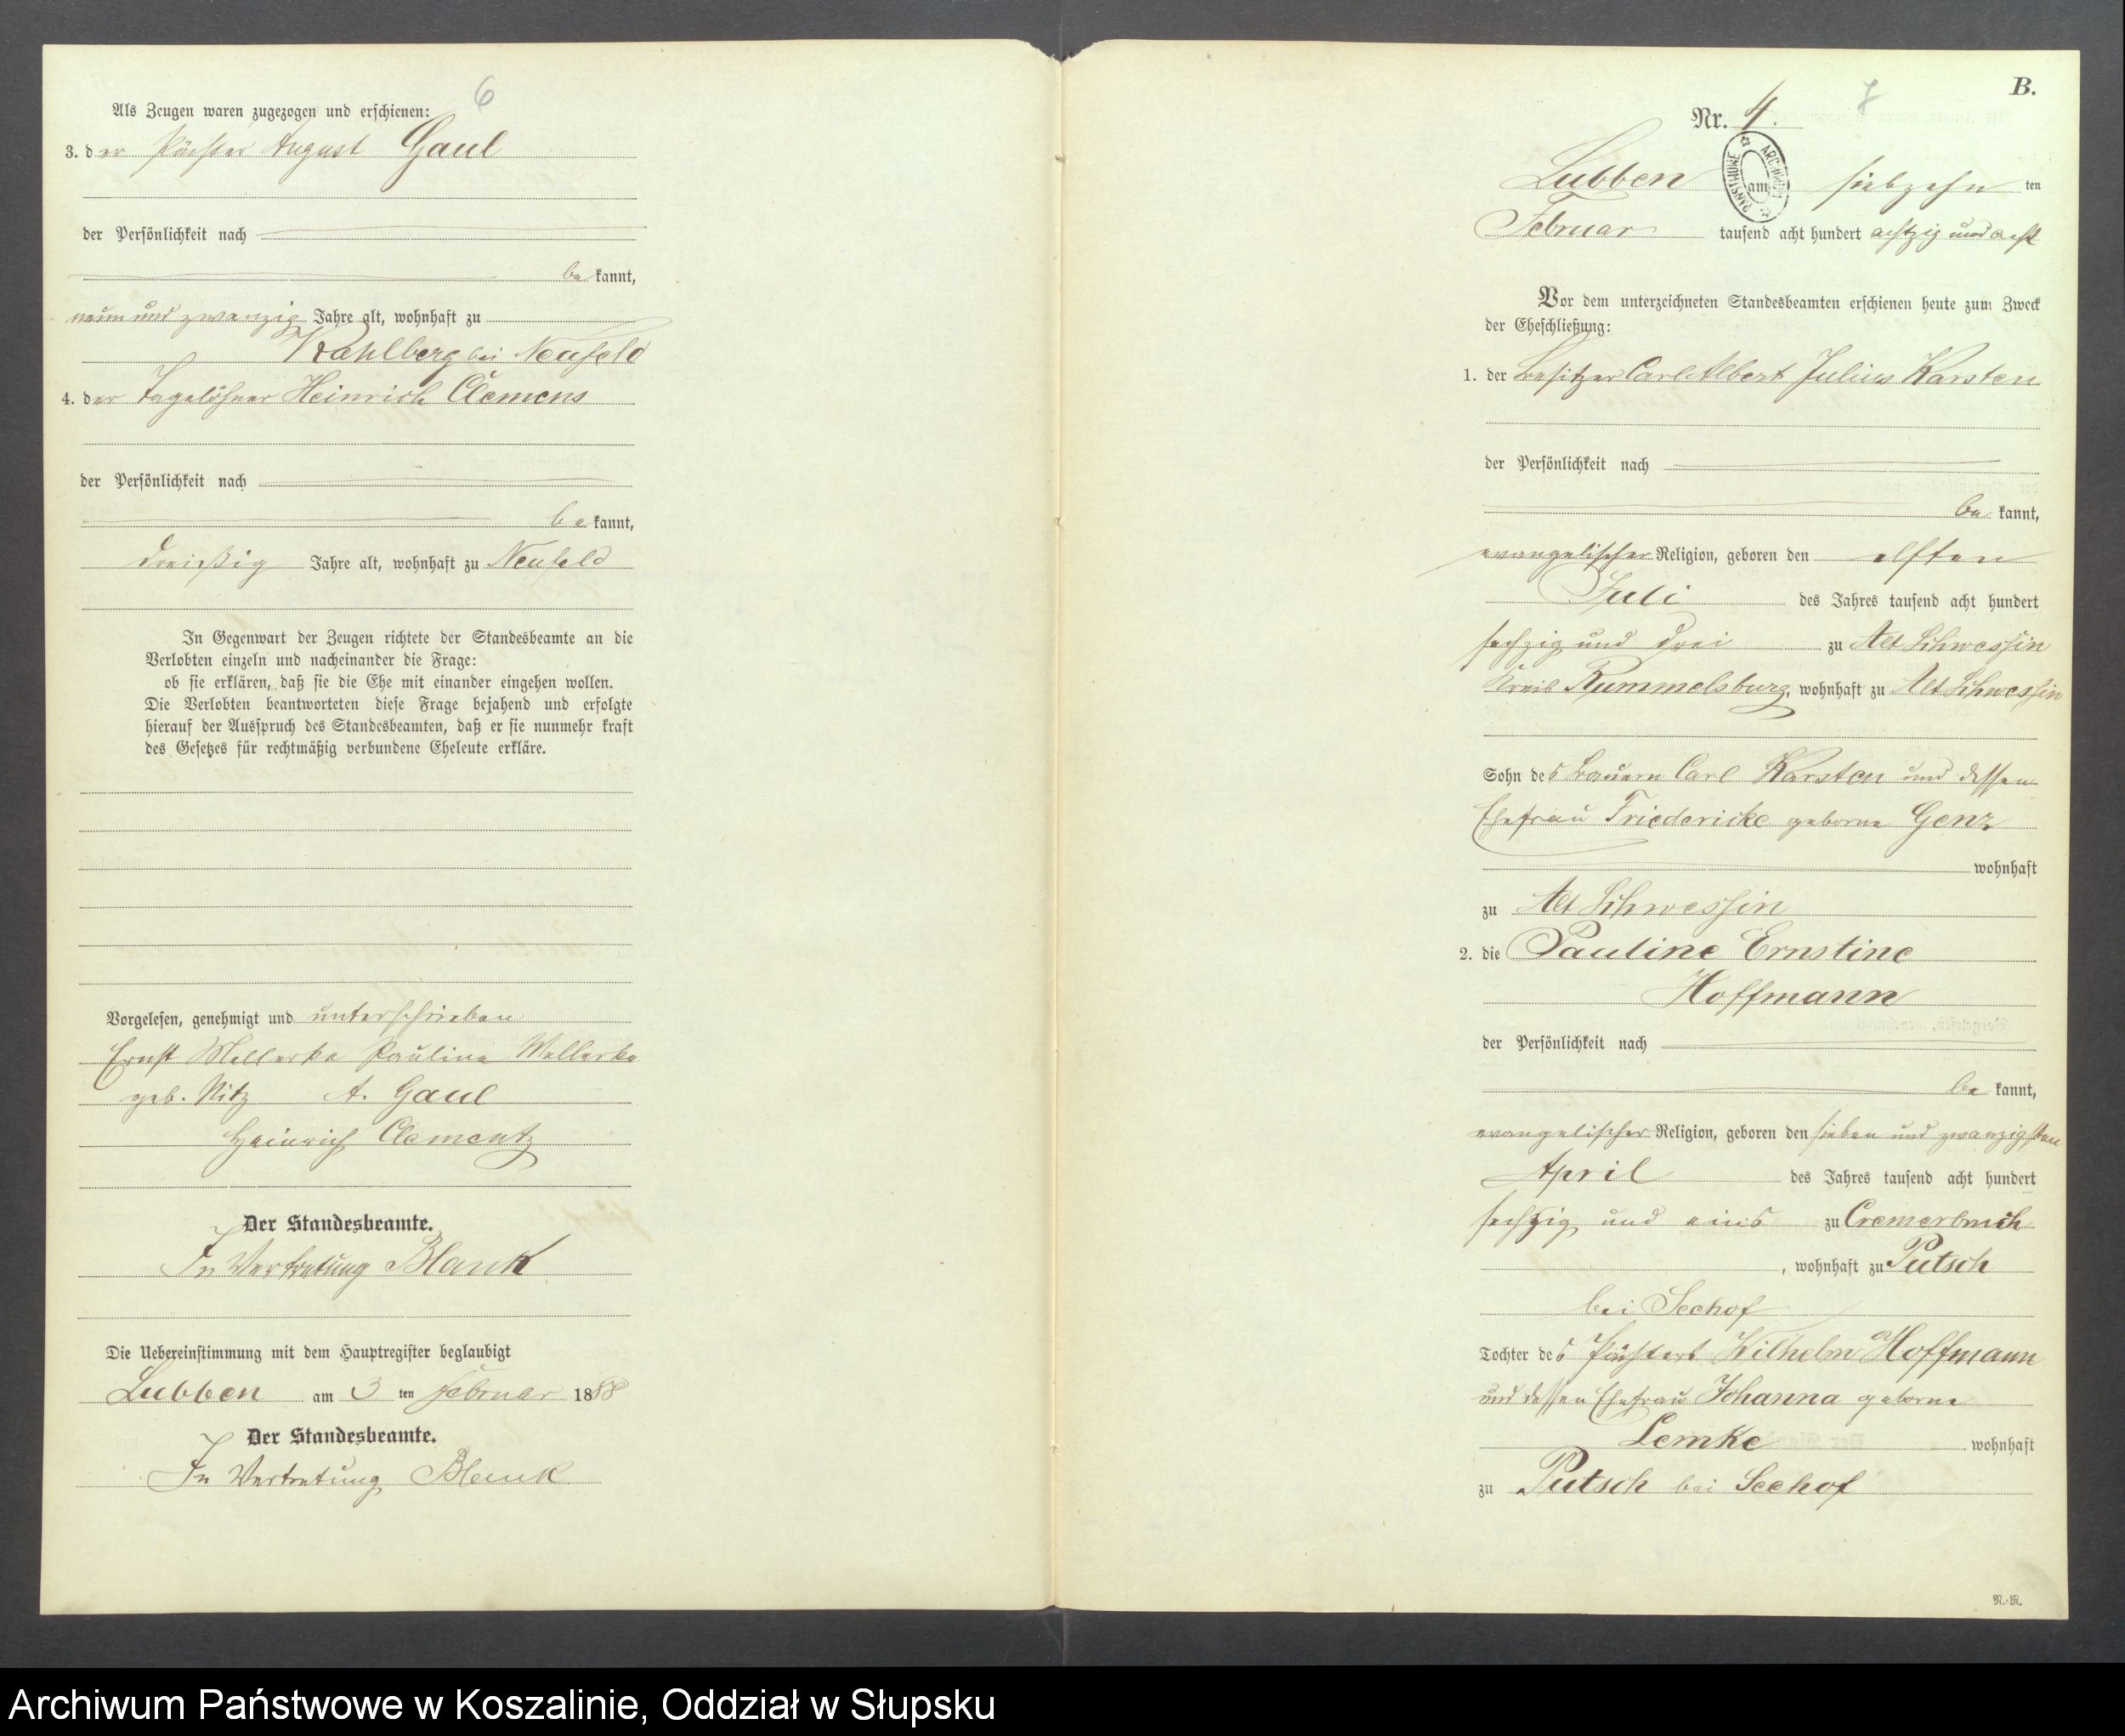 6
Als Zeugen waren zugezogen und erschienen:
3. der Pächter August Gaul
der Persönlichkeit nach
bekannt,
neun und zwanzig Jahre alt, wohnhaft zu
Kahlberg bei Neufeld
4. der Tagelöhner Heinrich Clemens
der Persönlichkeit nach
bekannt,
dreißig Jahre alt, wohnhaft zu Neufeld
In Gegenwart der Zeugen richtete der Standesbeamte an die
Verlobten einzeln und nacheinander die Frage:
ob sie erklären, daß sie die Ehe mit einander eingehen wollen.
Die Verlobten beantworteten diese Frage bejahend und erfolgte
hierauf der Ausspruch des Standesbeamten, daß er sie nunmehr kraft
des Gesetzes für rechtmäßig verbundene Eheleute erkläre.
Vorgelesen, genehmigt und unterschrieben
Ernst Mellerke Pauline Mellerke
geb. Nitz A. Gaul
Heinrich Clementz
Der Standesbeamte.
In Vertretung Blank
Die Uebereinstimmung mit dem Hauptregister beglaubigt
Lubben am 3 ten Februar 1888
Der Standesbeamte.
In Vertretung Blank
B.
7
Nr. 4.
Lubben am siebzehn ten
Februar tausend acht hundert achtzig und acht
Vor dem unterzeichneten Standesbeamten erschienen heute zum Zweck
der Eheschließung:
1. der Besitzer Carl Albert Julius Karsten
der Persönlichkeit nach
bekannt,
evangelischer Religion, geboren den elften
Juli des Jahres tausend acht hundert
sechzig und drei zu Alt Schwessin
Kreis Rummelsburg, wohnhaft zu Alt Schwessin
Sohn des Bauern Carl Karsten und dessen
Ehefrau Friedericke geborne Genz
wohnhaft
zu Alt Schwessin
2. die Pauline Ernstine
Hoffmann
der Persönlichkeit nach
bekannt,
evangelischer Religion, geboren den sieben und zwanzigsten
April des Jahres tausend acht hundert
sechzig und eins zu Cremerbruch
, wohnhaft zu Putsch
bei Seehof
Tochter des Pächters Wilhelm Hoffmann
und dessen Ehefrau Johanna geborne
Lemke wohnhaft
zu Putsch bei Seehof
N.-R.
Archiwum Państwowe w Koszalinie, Oddział w Słupsku